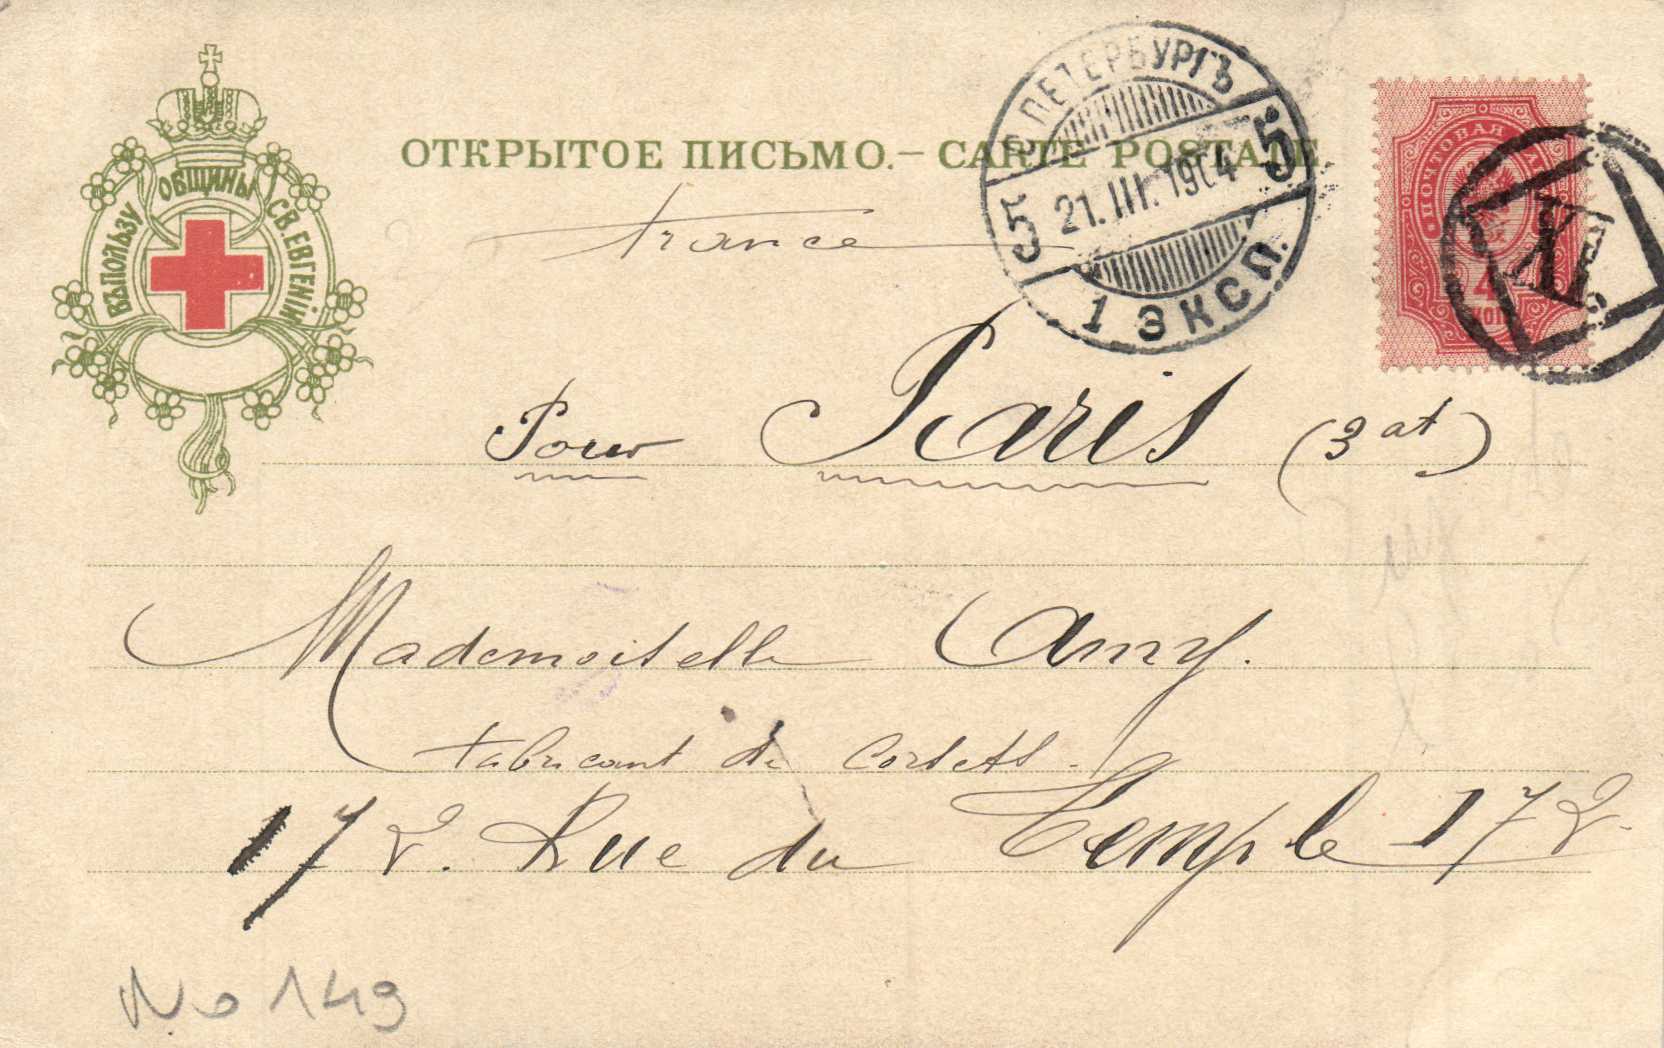 ВЪ ПОЛЬЗУ ОБЩИНЫ СВ. ЕВГЕНІИ
ОТКРЫТОЕ ПИСЬМО. — CARTE POSTALE
С ПЕТЕРБУРГЪ
5 21. III. 1904 5
1 ЭКСП.
ПОЧТОВАЯ
4
КОП
France
Pour Paris (3 at)
Mademoiselle Amy.
Fabricant de Corsets.
172. Rue du Temple 172.
No 149